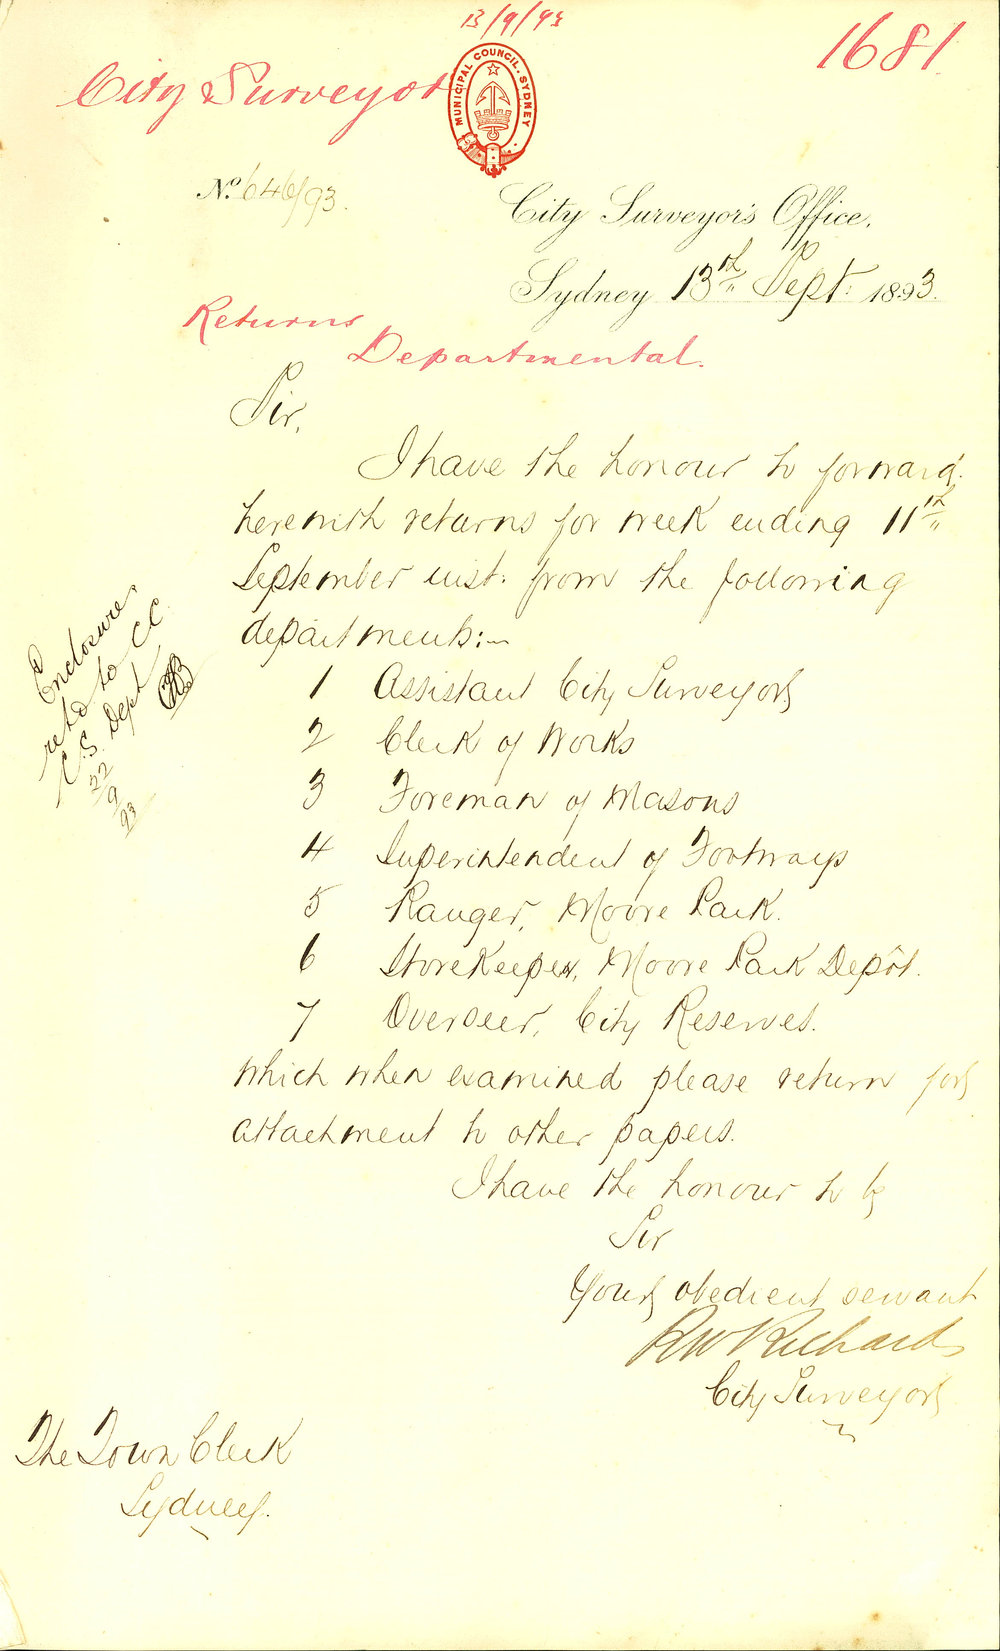 13/9/93
1681
City Surveyor
MUNICIPAL COUNCIL. SYDNEY
No. 646/93.
City Surveyor's Office.
Sydney 13th Sept: 1893.
Returns
Departmental.
Sir,
I have the honour to forward
herewith returns for week ending 11th
September inst: from the following
departments:~
1 Assistant City Surveyor
2 Clerk of Works
3 Foreman of Masons
4 Superintendent of Footways
5 Ranger, Moore Park.
6 Storekeeper, Moore Park Depôt.
7 Overseer, City Reserves.
which when examined please return for
attachment to other papers.
I have the honour to be
Sir
Your obedient servant
RW Richards
City Surveyor
The Town Clerk
Sydney.
Enclosure
retd to CC
C.S. Dept
22
9
93